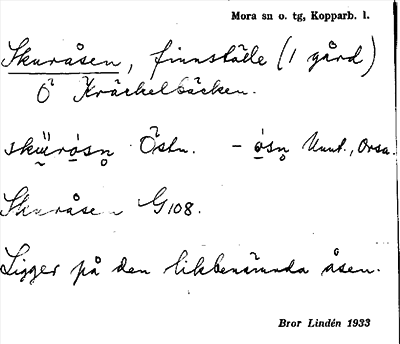 Mora sn o. tg, Kopparb. l.
Skuråsen, finnställe (1 gård)
Ö Kräckelbäcken.
skürósn Östn. - ósn Vunt., Orsa.
Skuråsen G108.
Ligger på den likbenämnda åsen.
Bror Lindén 1933